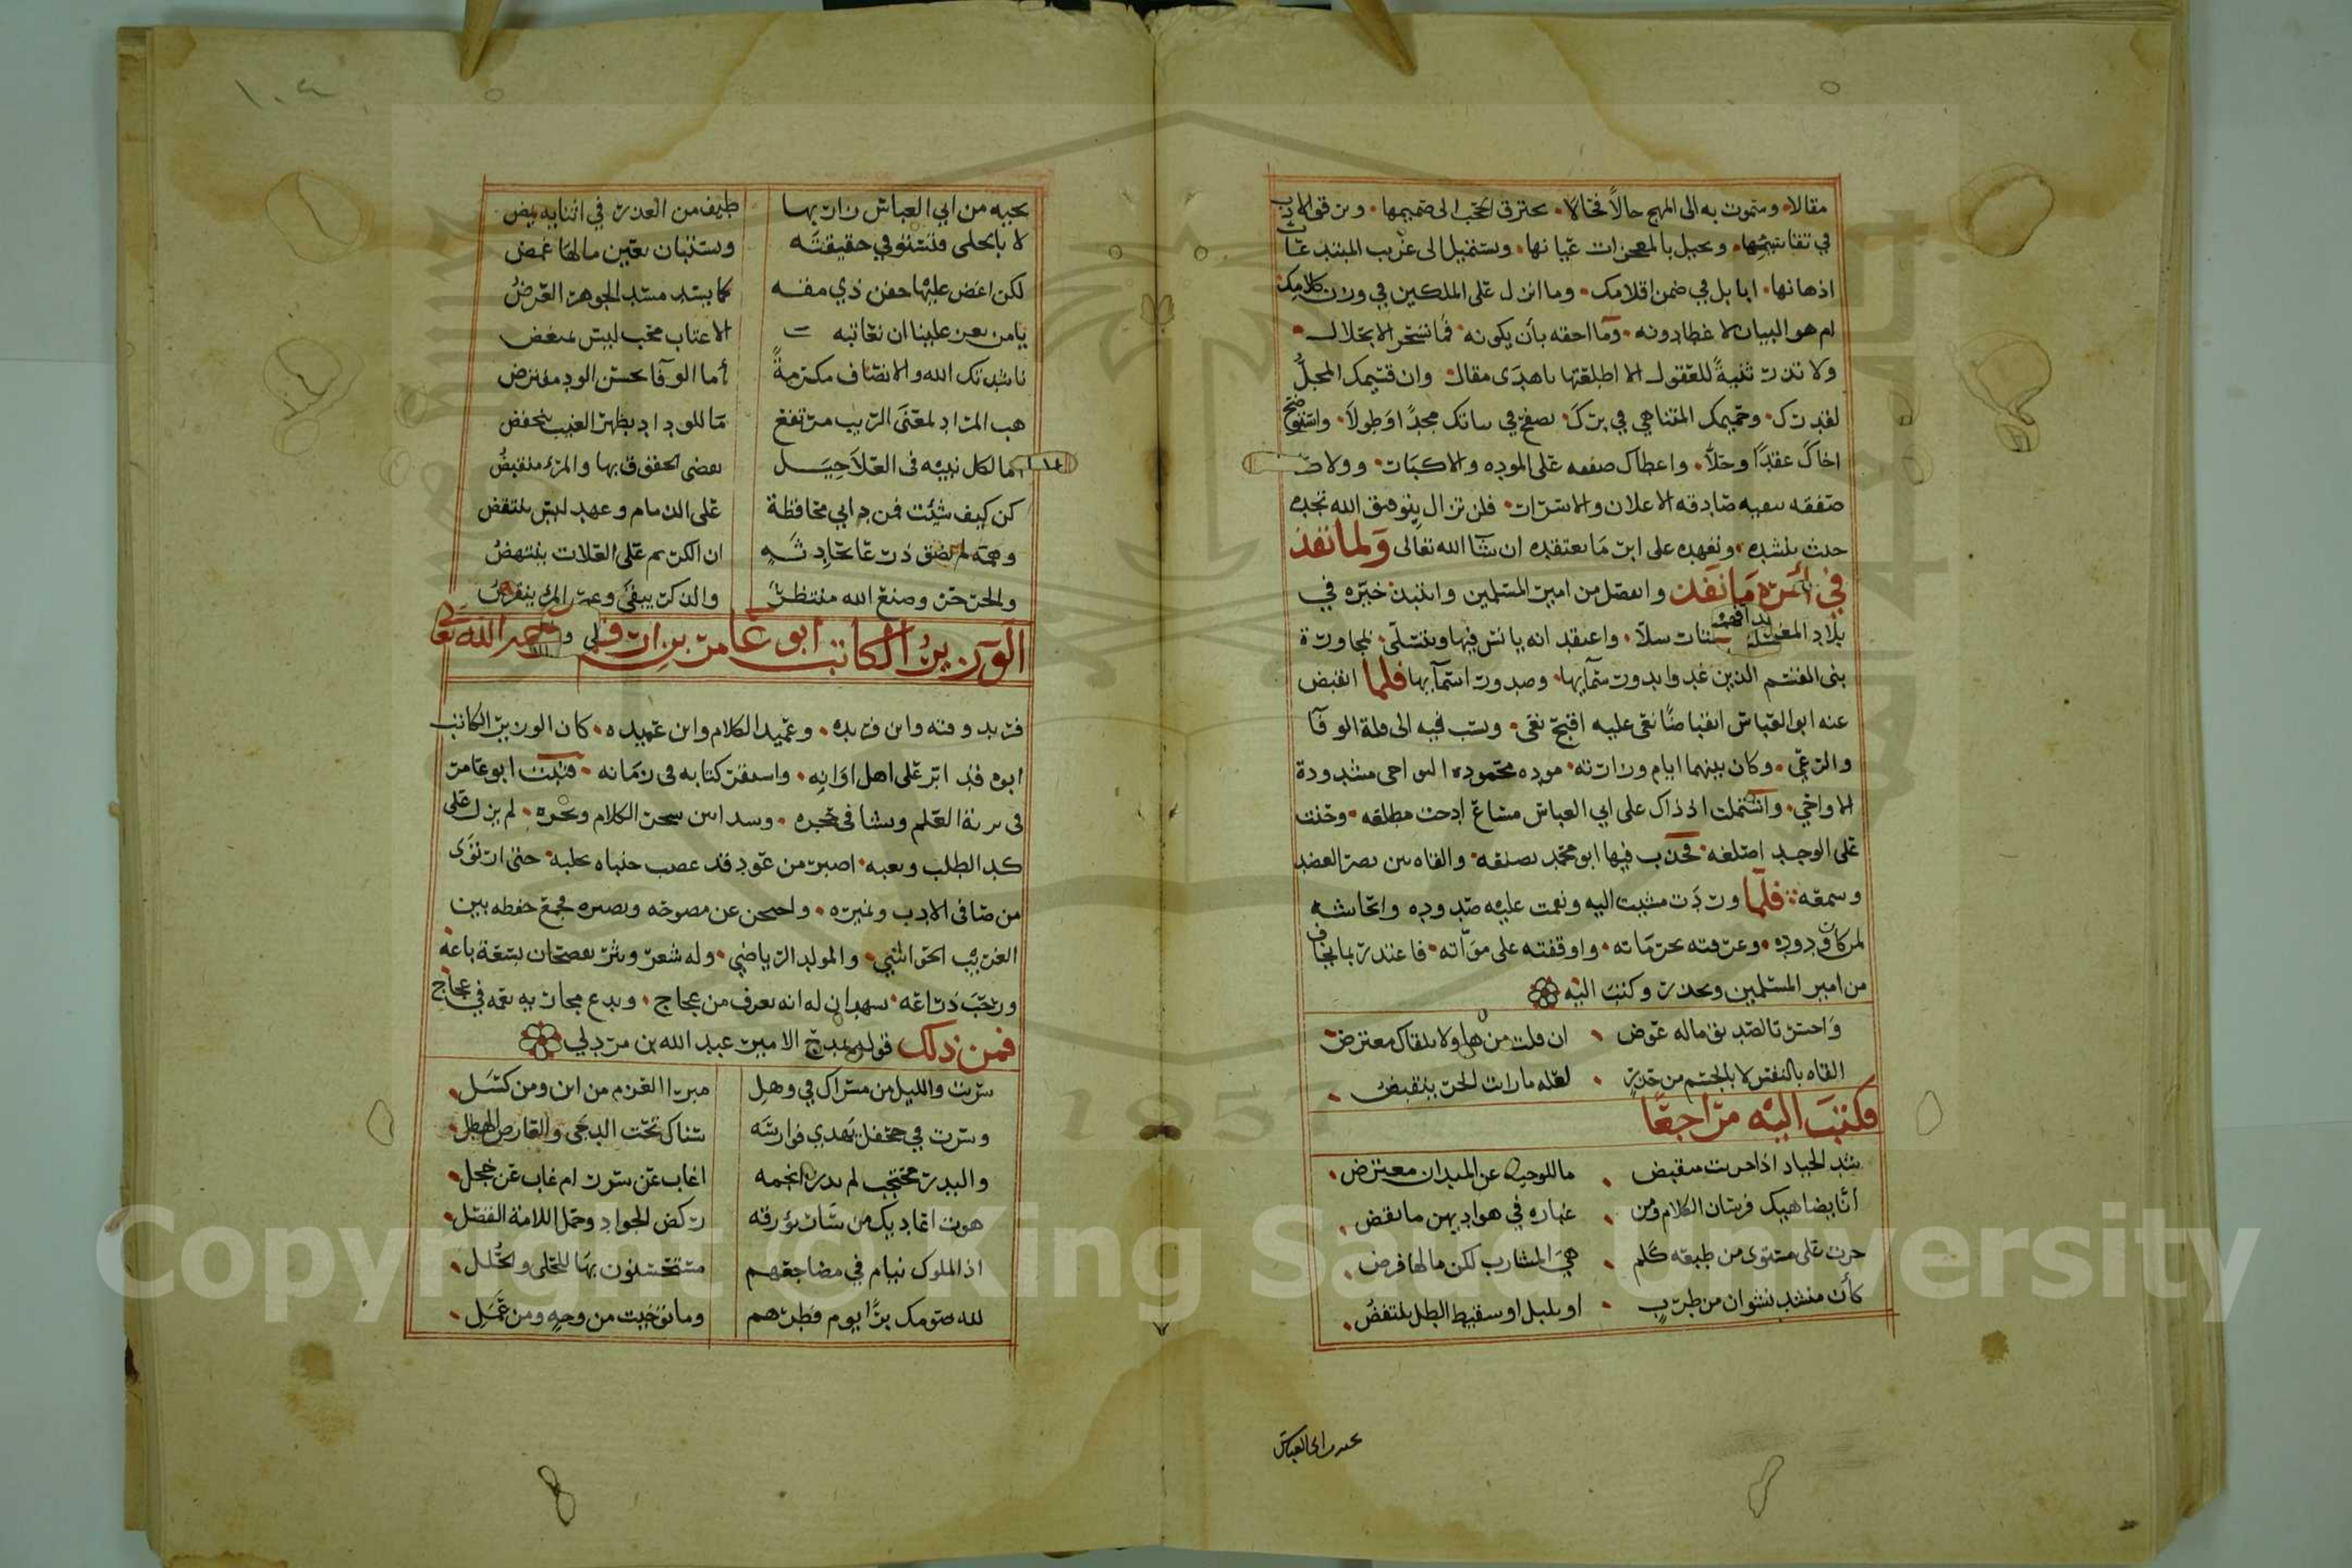 مقالا وسموت به الى المهج حالا فحالا يحترق الحجب الى صميمها
في تفاسيمها ويحيل بالمعجزات عيانها ويستميل الى غريب المبتدعات
اذهانها ابابل في ضمن اقلامك وما انزل على الملكين في وزن كلامك
ام هو البيان لا غطا دونه وما احقه بأن يكونه فما نسحر الا بحلال
ولا تذر ثنية للعقول الا اطلعتها باهدى مقال وان قسيمك المحل
لقدرك وحميمك المتناهي في برك تصفح في شانك مجدا وطولا واستوضح
اخاك عقدا وحلا واعطاك صفقه على الموده والاكبات وولاك
صفقه صادقه الاعلان والاسرار فلن تزال بتوفيق الله تجده
حيث ينشده وتعهده على ابر ما تعتقده ان شا الله تعالى ولما نفذ
في أمره ما نفذ وانفصل من امير المسلمين وانتبذ خيره في
بلاد المغرب سلا واعتقد انه يانس فيها ويتسلى لمجاورة
بني القسم الذين غدوا بدور سمآيها وصدور اسمآيها فلما انقبض
عنه ابو العباس انقباضا نعى عليه اقبح نعى ونسب فيه الى قلة الوفا
والرعي وكان بينهما ايام وزارته موده محموده النواحي مشدودة
الاواخي واشتملت اذ ذاك على ابي العباس مشاع ادحت مطلعه وحنت
على الوجد اضلعه فحدب فيها ابو محمد بصنعه والقاه بين بصر العضد
وسمعه فلما وردت مشيت اليه ونعمت عليه صدوده وانحاشه
لمركان دوده وعرفته بحرماته واوقفته على مواته فاعتذر بما يخاف
من امير المسلمين ويحذر وكتب اليه
واحسرتا لصديق ماله عوض ان قلت من هو لا يلقاك معترض
القاه بالنفس لا بالجسم من حذر لعله ما رات الحر ينقبض
فكتب اليه مراجعا
شد الجياد اذا جريت منقبض ما للوجيه عن الميدان معترض
أنا يضاهيك فرسان الكلام ومن غباره في هواديهن ما نفض
جرت على مستوى من طبعه كلم هي المشارب لكن ما لها فرض
كأن منشد نشوان من طرب او بلبل او سقيط الطل ينتفض
تحيه من ابي العباس
١٠٤
تحيه من ابي العباس زار بها طيف من العذر في اثنايه يمض
لا بالجلى فتستوفي حقيقته وتستبان بعين مالها غمض
لكن اغض عليها جفن ذي مقه كما يسد مسد الجوهر العرض
يا من يعز علينا ان نعاتبه الا عتاب محب ليس يمتعض
ناشدتك الله والانصاف مكرمة أما الوفا بحسن الود مفترض
هب المزار لمعنى الريب مرتفع ما للوداد بظهر الغيب ينخفض
اما لكل نبيه في العلا حيل تقضى الحقوق بها والمرء منقبض
كن كيف شئت فمن دابي محافظة على الذمام وعهد ليس ينتقض
وهمه لم تضق ذرعا بحادثه ان الكريم على العلات ينتهض
والحر حر وصنع الله منتظر والذكر يبقى وعمر المرء ينقرض
الوزير الكاتب ابو عامر بن ارقم رحمه الله تعالى
فريد وقته وابن فريده وعميد الكلام وابن عميده كان الوزير الكاتب
ابوه قد ابر على اهل اوانه واستقرت كتابه في زمانه فنبت ابو عامر
في تربة العلم ونشا في حجره وسدا بين سحر الكلام ونحره لم يزل على
كد الطلب وتعبه اصبر من عود قد عصب جنباه بجلبه حتى ارتوى
من صافي الادب ونميره واحتجن عن مصوحه ونصيره فجمع حفظه بين
الغريب الحوشي والمولد الرياضي وله شعر ونثر يفصحان بسعة باعه
ورحب ذراعه يشهدان له انه يعرف من عجاج ويدع مجاريه يعمه في عجاج
فمن ذلك قوله يمدح الامير عبد الله بن مزدلي
سريت والليل من مسراك في وهل مبرا العزم من اين ومن كسل
وسرت في جحفل يهدي فوارسه سناك تحت الدجى والعارض الهطل
والبدر محتجب لم يدر انجمه اغاب عن سرر ام غاب عن خجل
هوت اعاديك من سار يؤرقه ركض الجواد وحمل اللامة الفضل
اذ الملوك نيام في مضاجعهم مستحسنون بها للحلى والحلل
لله صومك برا يوم فطرهم وما توخيت من وجه ومن عمل
Copyright © King Saud University
1957